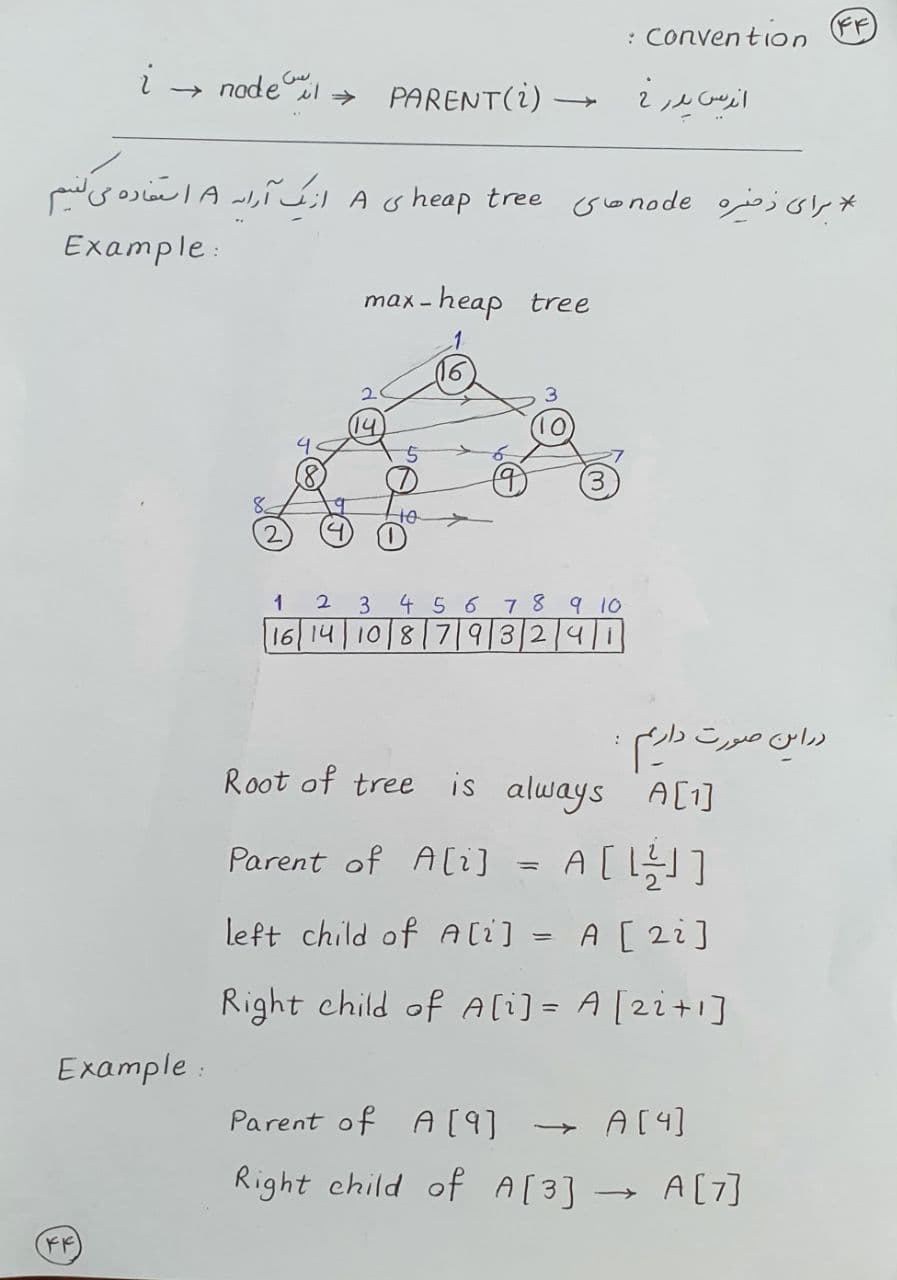 ۴۴
convention :
i → node اندیس ⇒ PARENT(i) → اندیس پدر i
* برای ذخیره node های heap tree ی A از یک آرایه A استفاده می‌کنیم
Example :
max-heap tree
1
16
2 3
14 10
4 5 6 7
8 7 9 3
8 9 10
2 4 1
1 2 3 4 5 6 7 8 9 10
16 14 10 8 7 9 3 2 4 1
در این صورت داریم :
Root of tree is always A[1]
Parent of A[i] = A[⌊i/2⌋]
left child of A[i] = A[2i]
Right child of A[i] = A[2i+1]
Example :
Parent of A[9] → A[4]
Right child of A[3] → A[7]
۴۴